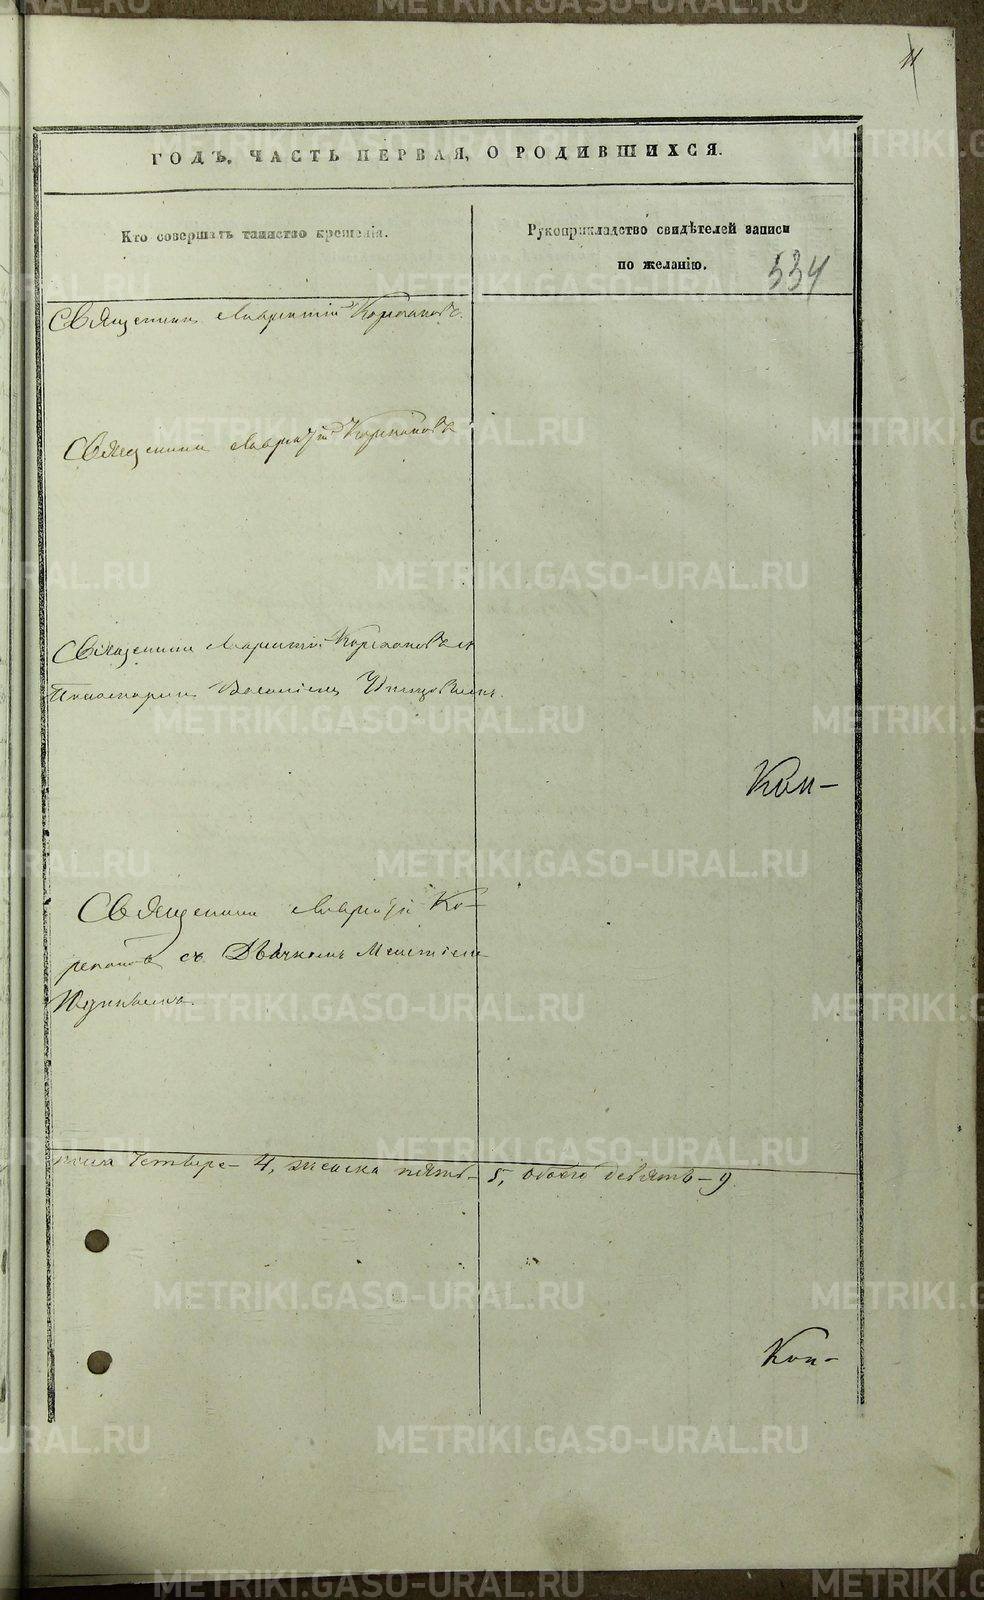 11
ГОДЪ. ЧАСТЬ ПЕРВАЯ, О РОДИВШИХСЯ.
Кто совершалъ таинство крещенія.
Рукоприкладство свидѣтелей записи
по желанію.
534
Священникъ Лаврентій Корепановъ.
Священникъ Лаврентій Корепановъ
Священникъ Лаврентій Корепановъ съ
Василіемъ
Коп-
Священникъ Лаврентій Ко-
репановъ съ Дьячкомъ
пола четыре - 4, женска пять - 5, обоего девять - 9
Коп-
METRIKI.GASO-URAL.RU